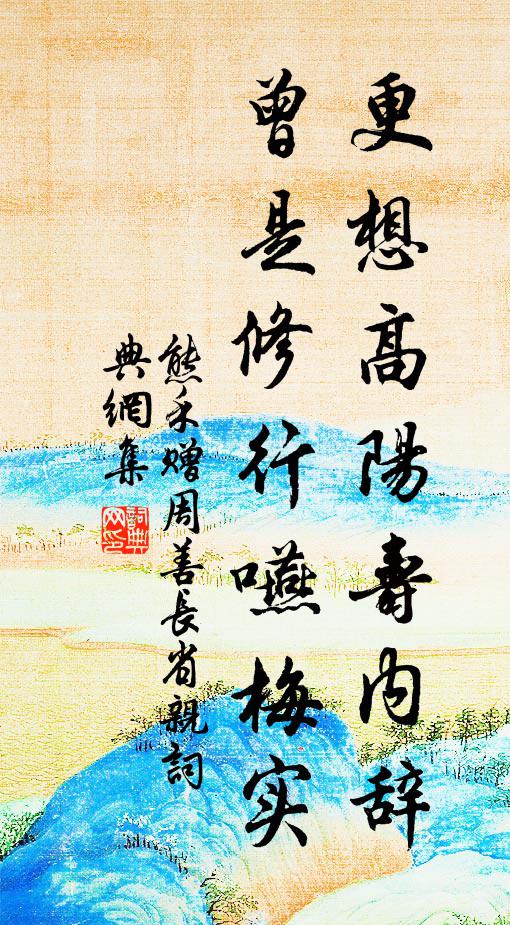 更想高陽壽内辞
曾是修行嚥梅实
熊禾赠周善長省親詞
典網集
詞典网印